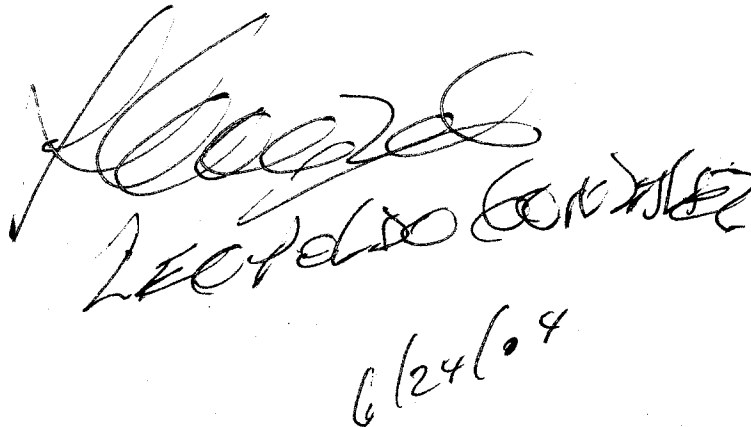 LEOPOLDO GONZALEZ
6/24/04